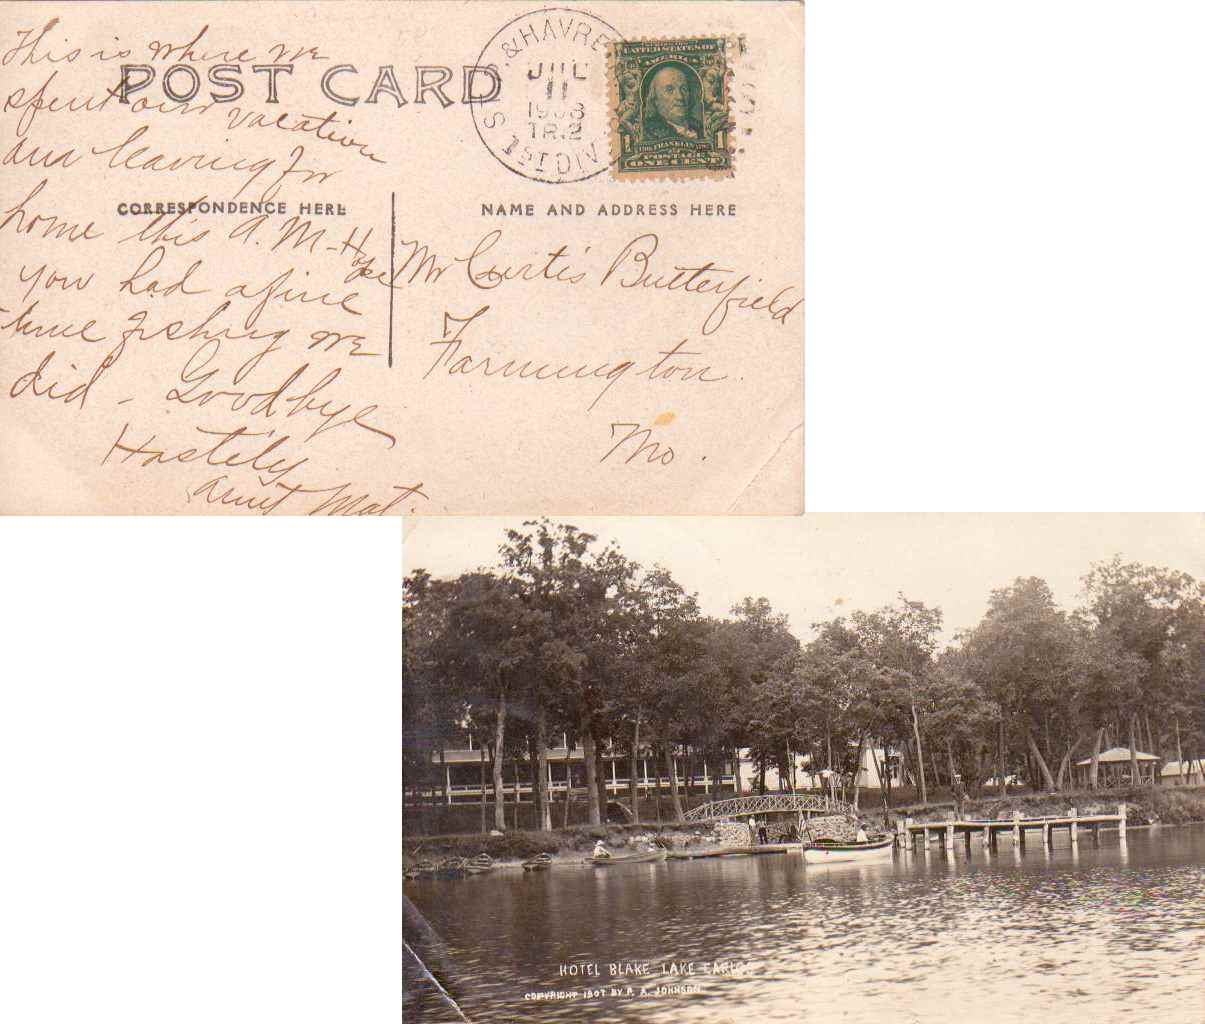 This is where we
POST CARD
spent our vacation
am leaving for
CORRESPONDENCE HERE
home this A.M - Hope
you had a fine
time fishing we
did - Goodbye
Hastily
Aunt Mat.
S. & HAVRE
JUL
11
1908
TR.2
1ST DIV
UNITED STATES OF
AMERICA
1 1
POSTAGE
ONE CENT
NAME AND ADDRESS HERE
Mr Curtis Butterfield
Farmington
Mo.
HOTEL BLAKE LAKE CARLOS
COPYRIGHT 1907 BY P. A. JOHNSON